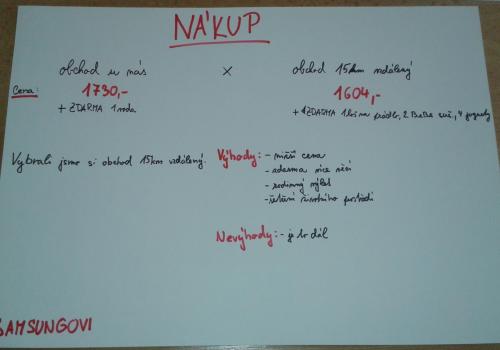 NÁKUP
obchod u nás × obchod 15km vzdálený
Cena: 1730,- 1604,-
+ ZDARMA 1 voda + ZDARMA 1 na prádlo, 2
Vybrali jsme si obchod 15km vzdálený.
Výhody: - nižší cena
- zdarma více věcí
- rodinný výlet
- šetření životního prostředí
Nevýhody: - je to dál
SAMSUNGOVI